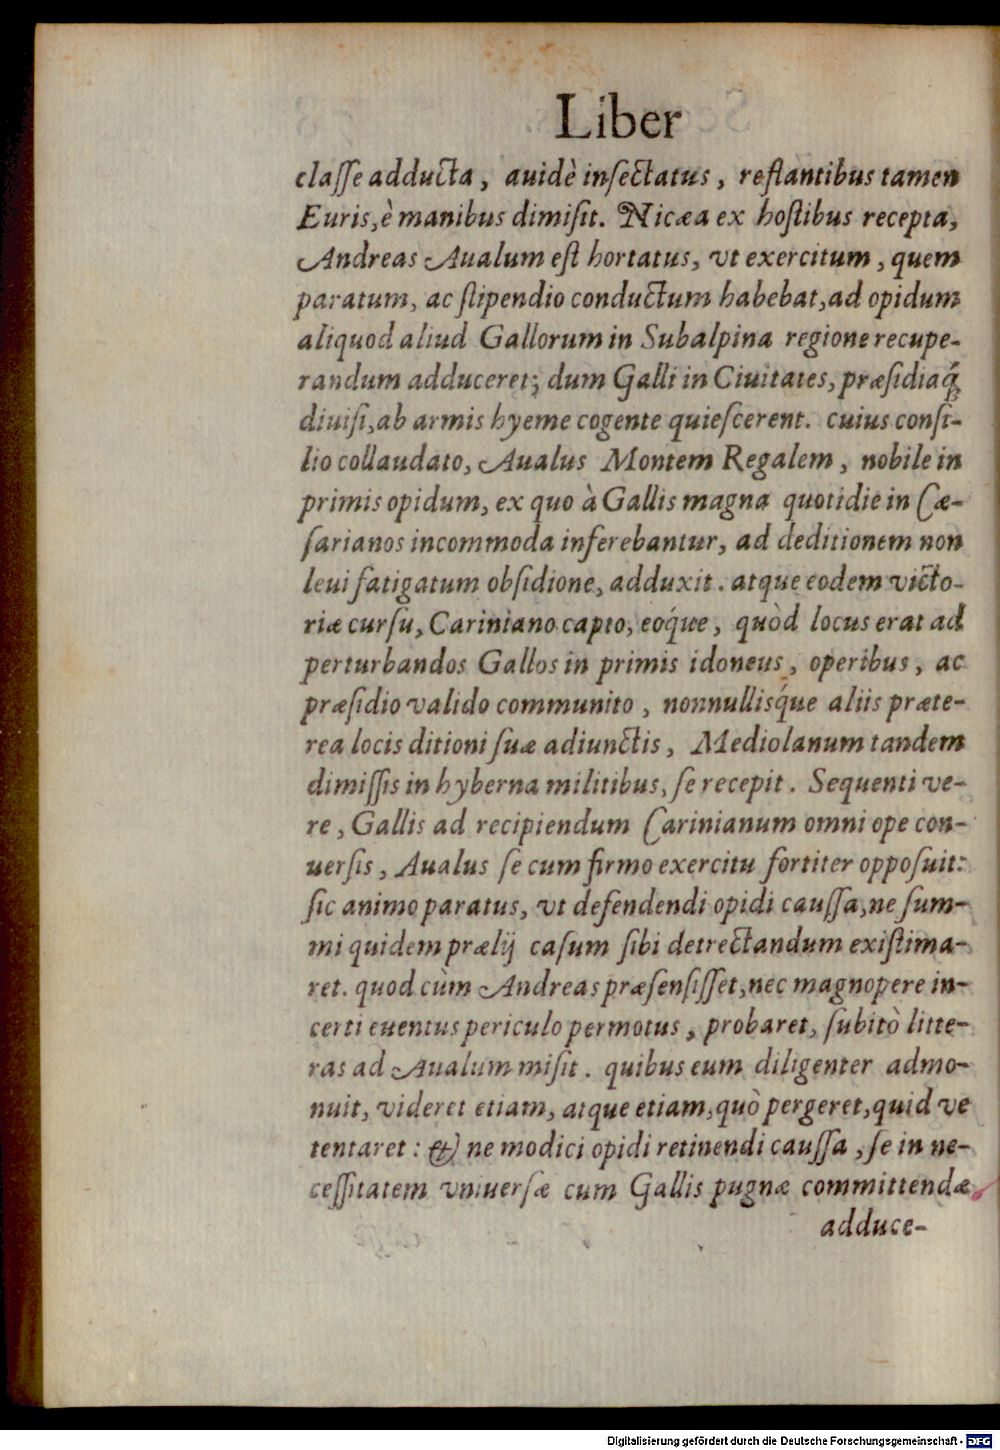 Liber
claſſe adducta, auidè inſectatus, reflantibus tamen
Euris, è manibus dimiſit. Nicæa ex hoſtibus recepta,
Andreas Aualum eſt hortatus, vt exercitum, quem
paratum, ac ſtipendio conductum habebat, ad opidum
aliquod aliud Gallorum in Subalpina regione recupe-
randum adduceret; dum Galli in Ciuitates, præſidiaq́;
diuiſi, ab armis hyeme cogente quieſcerent. cuius conſi-
lio collaudato, Aualus Montem Regalem, nobile in
primis opidum, ex quo à Gallis magna quotidie in Cæ-
ſarianos incommoda inferebantur, ad deditionem non
leui fatigatum obſidione, adduxit. atque eodem victo-
riæ curſu, Cariniano capto, eoq́ue, quòd locus erat ad
perturbandos Gallos in primis idoneus, operibus, ac
præſidio valido communito, nonnullisq́ue aliis præte-
rea locis ditioni ſuæ adiunctis, Mediolanum tandem
dimiſſis in hyberna militibus, ſe recepit. Sequenti ve-
re, Gallis ad recipiendum Carinianum omni ope con-
uerſis, Aualus ſe cum firmo exercitu fortiter oppoſuit:
ſic animo paratus, vt defendendi opidi cauſſa, ne ſum-
mi quidem prælij caſum ſibi detrectandum exiſtima-
ret. quod cùm Andreas præſenſiſſet, nec magnopere in-
certi euentus periculo permotus, probaret, ſubitò litte-
ras ad Aualum miſit. quibus eum diligenter admo-
nuit, videret etiam, atque etiam, quò pergeret, quid ve
tentaret: & ne modici opidi retinendi cauſſa, ſe in ne-
ceſſitatem vniuerſæ cum Gallis pugnæ committendæ
adduce-
Digitalisierung gefördert durch die Deutsche Forschungsgemeinschaft - DFG